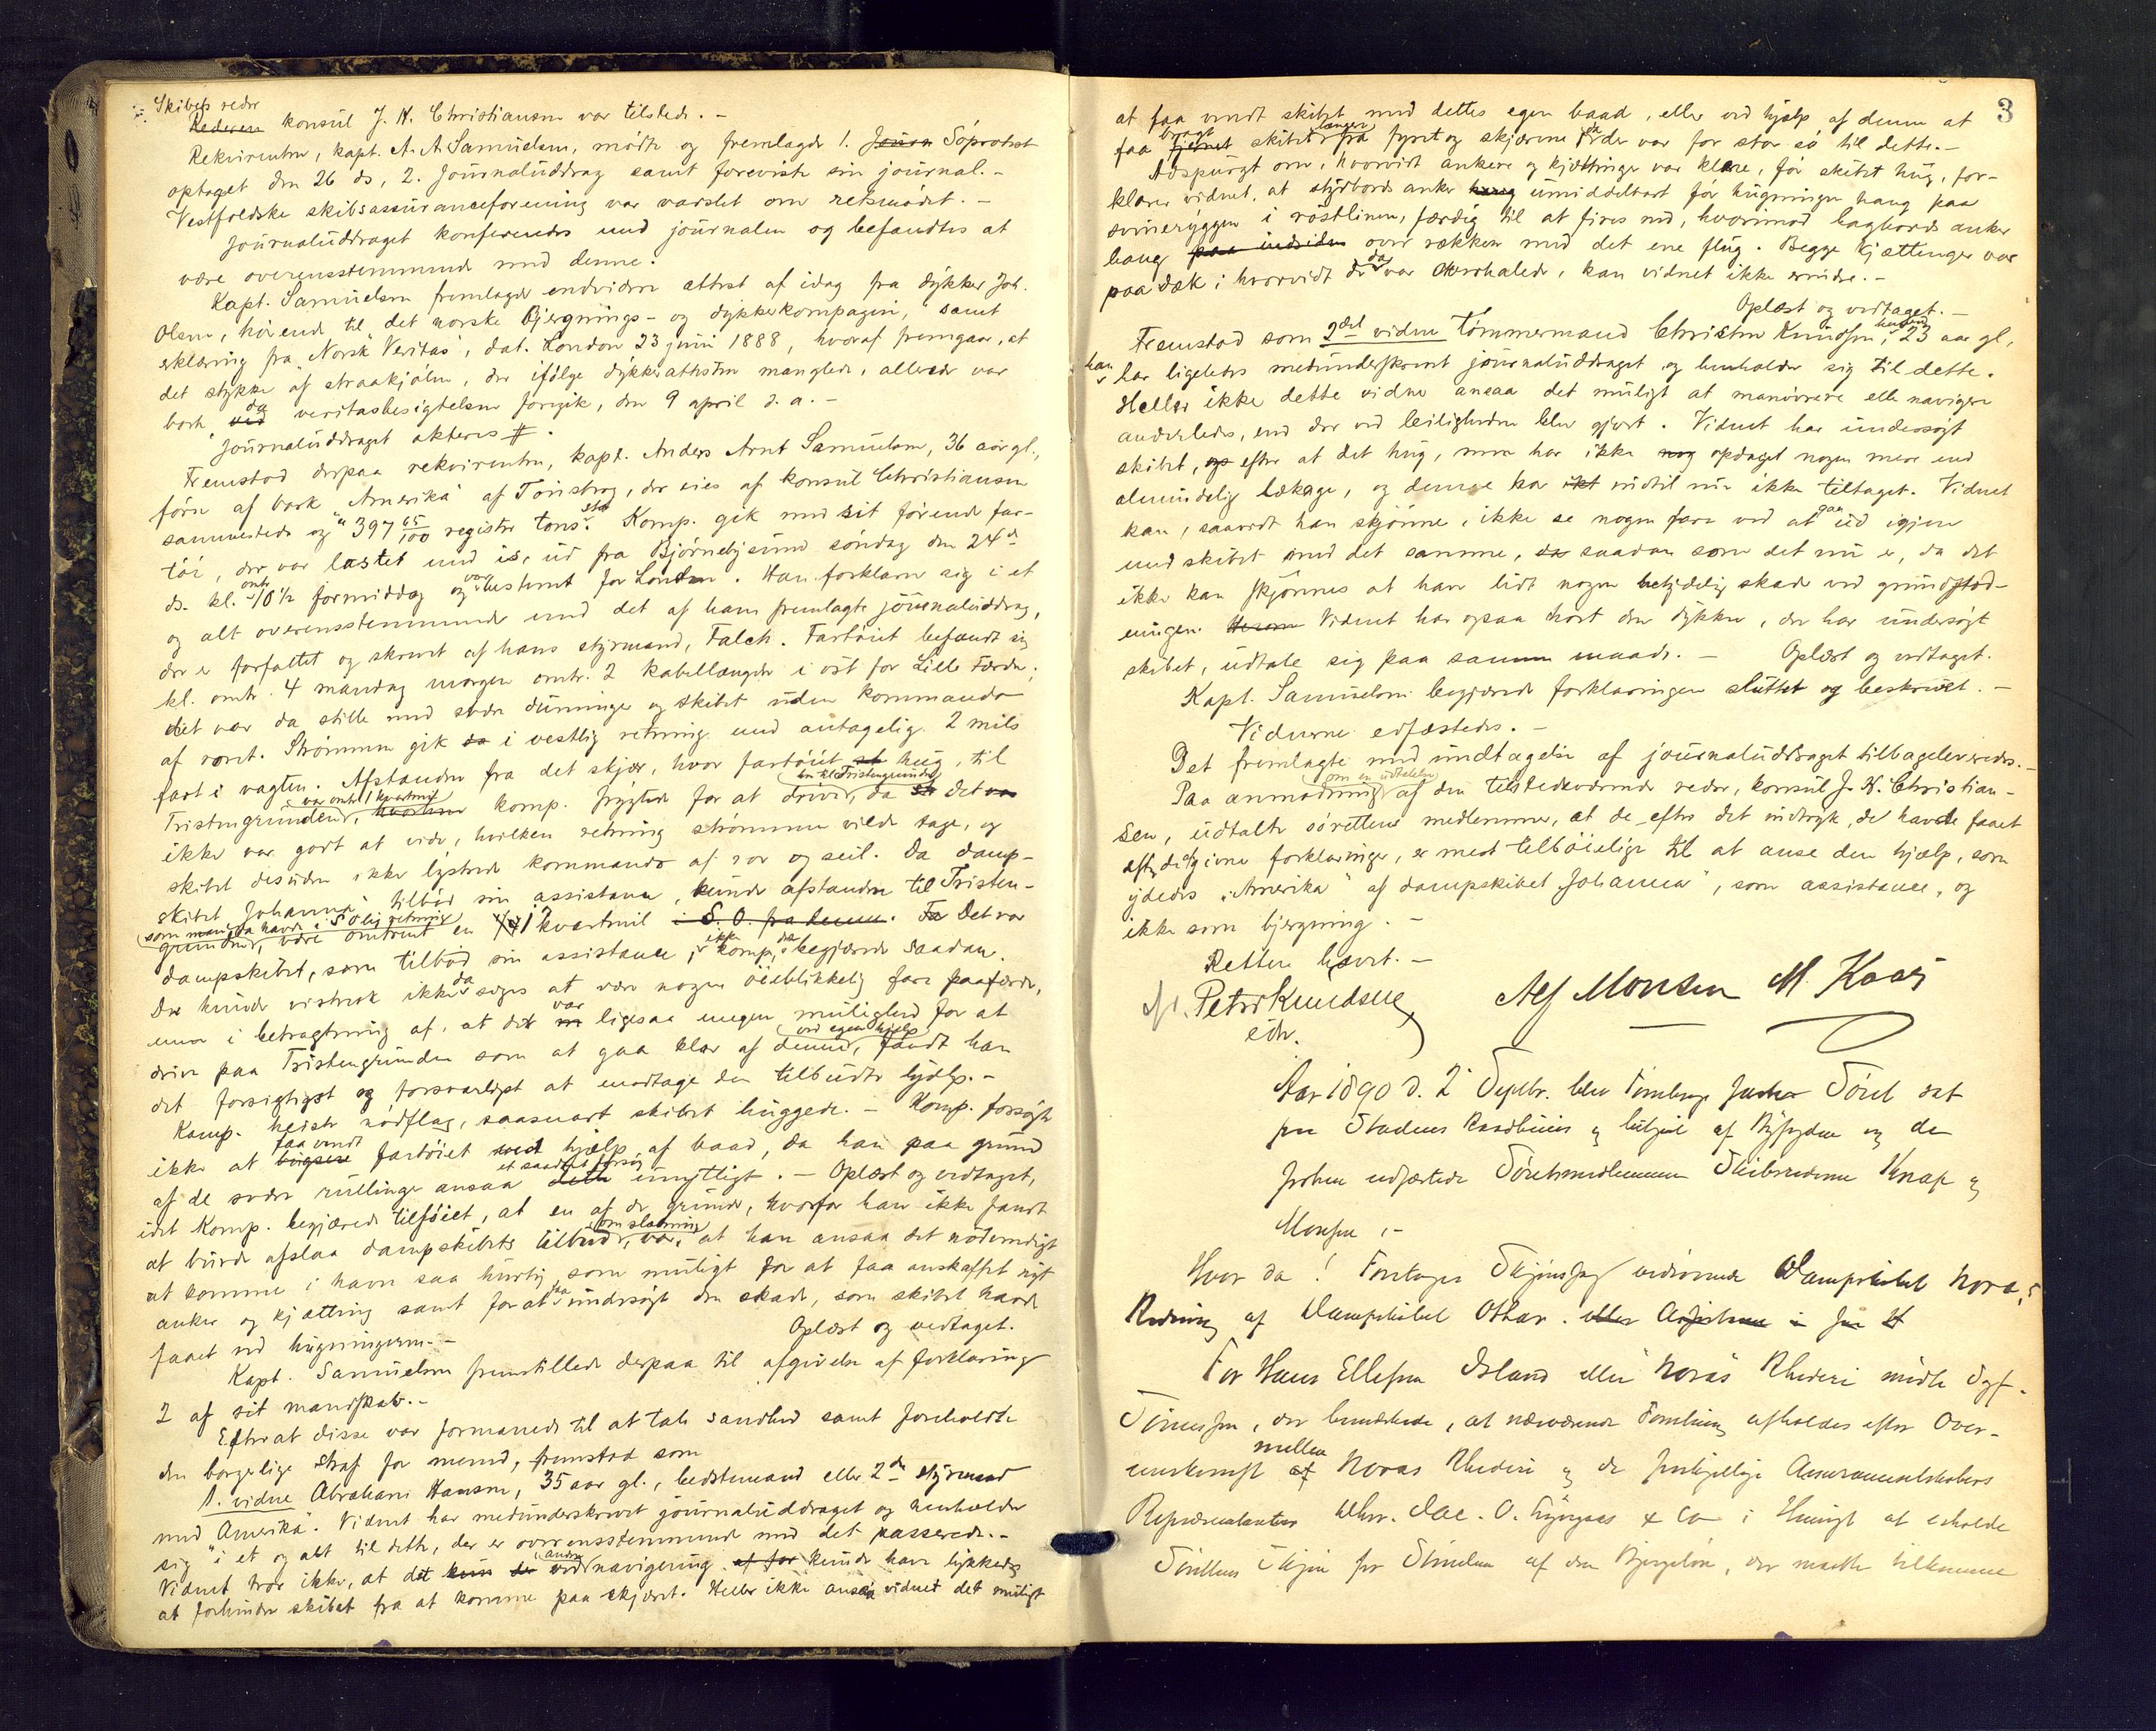 Skibets reder
Rederen konsul J. H. Christiansen var tilstede. –
Rekvirenten, kapt. A. A. Samuelsen, mødte og fremlagde 1. Søprotest
optaget den 26 ds, 2. journaluddrag samt foreviste sin journal. –
Vestfoldske skibsassuranceforening var varslet om retsmødet. –
Journaluddraget konfereredes med journalen og befandtes at
være overensstemmende med denne.
Kapt. Samuelsen fremlagde endvidere attest af idag fra dykker Joh.
Olsen, hørende til „det norske Bjergnings- og dykkerkompagni," samt
erklæring fra „Norsk Veritas", dat. London 23 juni 1888, hvoraf fremgaar, at
det stykke af straakjølen, der ifølge dykkerattesten manglede, allerede var
bort, ved da veritasbesigtelsen foregik, den 9 april d. a. –
Journaluddraget akteres #.
Fremstod derpaa rekvirenten, kapt. Anders Arnt Samuelsen, 36 aar gl.,
fører af bark „Amerika" af Tønsberg, der eies af konsul Christiansen
sammesteds og 397 65/100 register tons. Komp. gik med sit førende far-
tøi, der var lastet med is, ud fra Bjørnebysund søndag den 24de
ds. kl. omtr. 10½ formiddag og var bestemt for London. Han forklarer sig i et
og alt overensstemmende med det af ham fremlagte journaluddrag,
der er forfattet og skrevet af hans styrmand, Falch. Fartøiet befandt sig
kl. omtr. 4 mandag morgen omtr. 2 kabellængder i øst for Lille Færder;
det var da stille med svære dünninger og skibet uden kommando
af roret. Strømmen gik da i vestlig retning med antagelig 2 mils
fart i vagten. Afstanden fra det skjær, hvor fartøiet hug, til
Tristengrunden, var omtr. 1 kvartmil komp. frygtede for at drive, inkl. Tristengrunden da det
ikke var godt at vide, hvilken retning strømmen vilde tage, og
skibet desuden ikke lystrede kommando af ror og seil. Da damp-
skibet „Johanna" tilbød sin assistance, kunde afstanden til Tristen-
grunden, som man da havde i S.O.lig retning være omtrent en 1 kvartmil i S.O. fra denne. Det var
dampskibet, som tilbød sin assistance, ikke komp, der begjærede saadan.
Der kunde vistnok ikke da siges at være nogen øieblikkelig fare paafærde,
men i betragtning af, at det var ligesaa megen mulighed for at
drive paa Tristengrunden som at gaa klar af denne, ved egen hjelp fandt han
det forsigtigst og forsvarligst at modtage den tilbudte hjelp. –
Komp. heiste nødflag, saasnart skibet huggede. – Komp. forsøgte
ikke at faa vendt bugsere fartøiet med hjælp af baad, da han paa grund
af de svære rullinger ansaa et saadant forsøg dette unyttigt. – Oplæst og vedtaget,
idet Komp. begjærede tilføiet, at en af de grunde, hvorfor han ikke fandt
at burde afslaa dampskibets tilbud om slæbning, var, at han ansaa det nødvendigt
at komme i havn saa hurtig som muligt for at faa anskaffet nyt
anker og kjætting samt for at faa undersøgt den skade, som skibet havde
faaet ved hugningerne. – Oplæst og vedtaget.
Kapt. Samuelsen fremstillede derpaa til afgivelse af forklaring
2 af sit mandskab. –
Efterat disse var formanede til at tale sandhed samt foreholdte
den borgerlige straf for mened, fremstod som
1. vidne Abraham Hansen, 35 aar gl., bedstemand eller 2den styrmand
med „Amerika". Vidnet har medunderskrevet journaluddraget og henholder
sig i et og alt til dette, der er overensstemmende med det passerede. –
Vidnet tror ikke, at det ved anden navigering kunde have lykkedes
at forhindre skibet fra at komme paa skjæret. Heller ikke ansaa vidnet det muligt
3
at faa vendt skibet med dettes egen baad, eller ved hjælp af denne at
faa bragt fjernet skibet længer fra fyret og skjærene, da der var for stor sø til dette. –
Adspurgt om, hvorvidt ankere og kjættinger var klare, før skibet hug, for-
klarer vidnet, at styrbords anker hang umiddelbart før hugningen hang paa
svineryggen i røstlinen, færdig til at fires ned, hvorimod bagbords anker
hang paa indsiden over rækken med det ene flug. Begge kjættinger var
paa dæk; hvorvidt de da var overhalede, kan vidnet ikke erindre. –
Oplæst og vedtaget. –
Fremstod som 2det vidne tømmermand Christen Knudsen, 23 aar gl,
han har ligeledes medunderskrevet journaluddraget og henholder sig til dette.
Heller ikke dette vidne ansaa det muligt at manøvrere eller navigere
anderledes, end der ved leiligheden blev gjort. Vidnet har undersøgt
skibet, efter at det hug, men har ikke opdaget nogen mere end
almindelig lækage, og denne har indtil nu ikke tiltaget. Vidnet
kan, saavidt han skjønne, ikke se nogen fare ved at gaa ud igjen
med skibet med det samme, saadan som det nu er, da det
ikke kan skjønnes at have lidt nogen betydelig skade ved grundstød-
ningen. Vidnet har ogsaa hørt den dykker, der har undersøgt
skibet, udtale sig paa samme maade. – Oplæst og vedtaget.
Kapt. Samuelsen begjærede forklaringen sluttet og beskrevet. –
Vidnerne edfæstedes. –
Det fremlagte med undtagelse af journaluddraget tilbageleveredes. –
Paa anmodning om en udtalelse af den tilstedeværende reder, konsul J. H. Christian-
sen, udtalte sørettens medlemmer, at de efter det indtryk, de havde faaet
efter de afgivne forklaringer, er mest tilbøielige til at anse den hjælp, som
ydedes „Amerika" af dampskibet „Johanna", som assistance, og
ikke som bjergning. –
Retten hævet. –
Petter Knudsen Alf Monsen M. Kaas
edv.
Aar 1890 d. 2 Septbr. blev Tønsbergs Søret sat
paa Stadens Raadhuus og betjent af Byfogden og de
forhen edfæstede Søretsmedlemmer Skibsrederne Knap og
Monsen. –
Hvor da! Foretoges Skjønssag vedrørende Dampskibet Nora's
Redning af Dampskibet Othar.
For Hans Ellefsen Island eller Noras Rhederi mødte Sagf.
Tønnesen, der bemærkede, at nærværende Forretning afholdes efter Over-
enskomst mellem af Noras Rhederi og de forskjellige Assuranceselskabers
Repræsentanter & Co i Henhold
Sørettens Skjøn for Størrelsen af den Bjergeløn, der maatte tilkomme